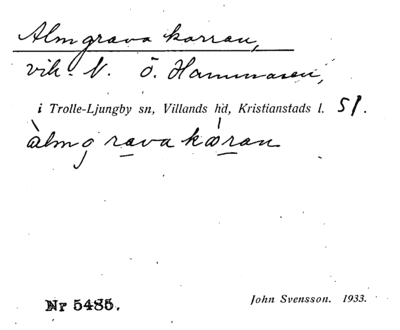 Almgrava korran,
vik. N. Ö. Hammaren,
i Trolle-Ljungby sn, Villands hd, Kristianstads l. 51.
àlmgravakòran
Nr 5485.
John Svensson. 1933.